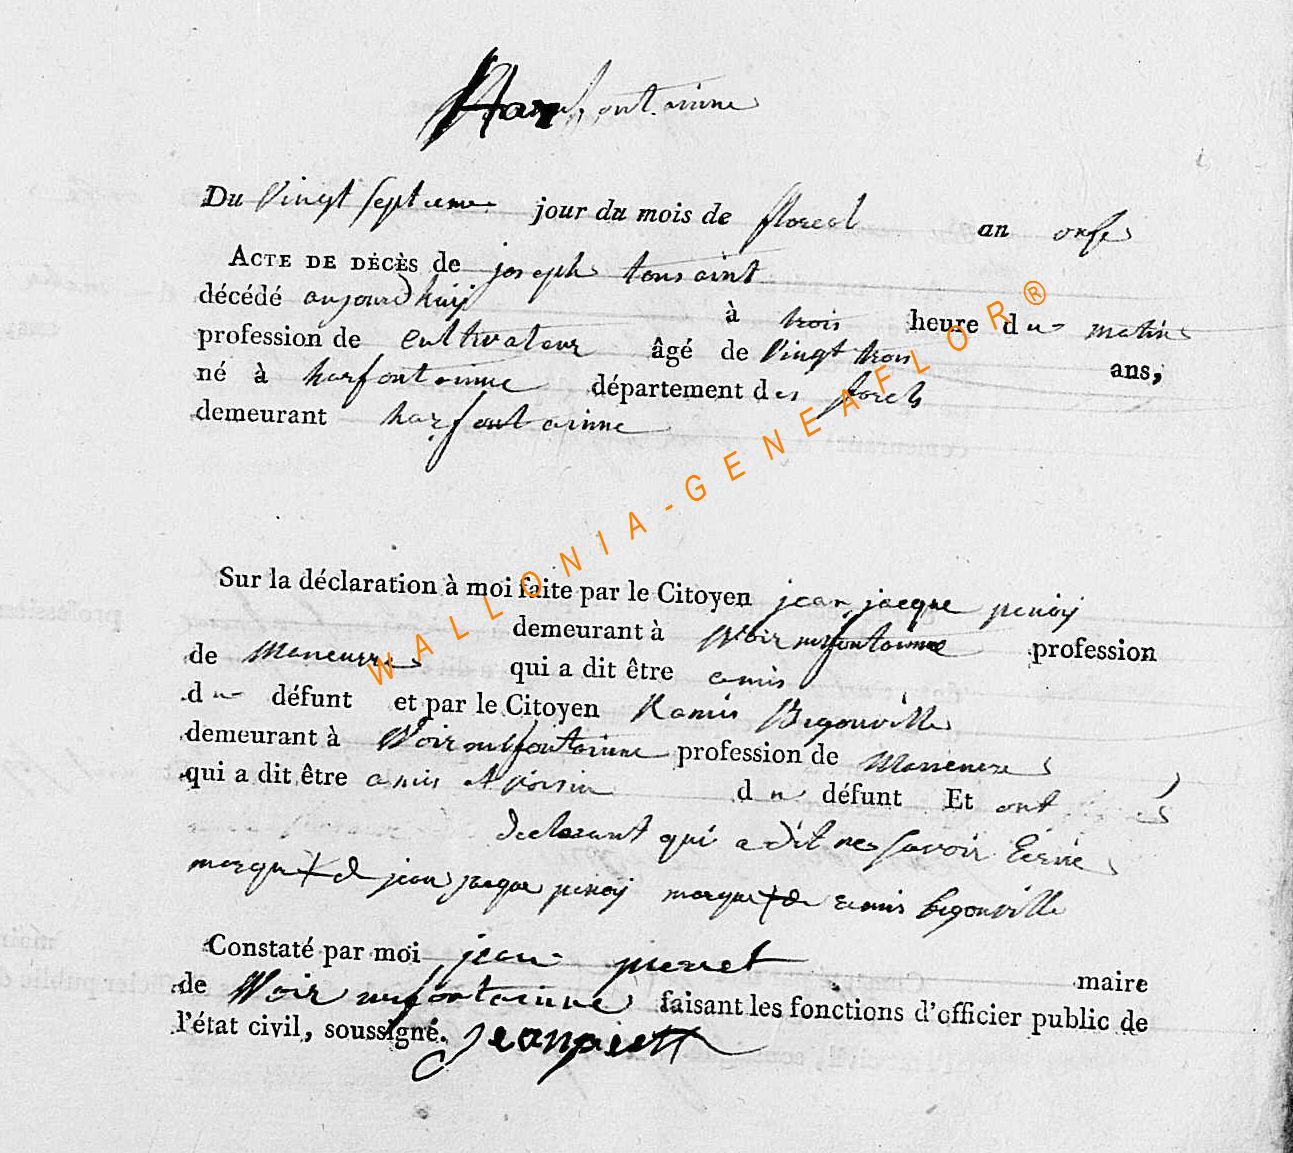 Harfontainne
Du Vingt septieme jour du mois de floreal an onse
ACTE DE DÉCÈS de joseph tousaint
décédé aujourdhuij à trois heure du matin
profession de cultivateur âgé de Vingt trois ans,
né à harfontainne département des forets
demeurant harfontainne
WALLONIA-GENEAFLOR®
Sur la déclaration à moi faite par le Citoyen jean jacque pinoij
demeurant à Noirmefontainne profession
de Maneuvre qui a dit être amis
du défunt et par le Citoyen Ramis Begonville
demeurant à Noirmefontainne profession de Maneuvre
qui a dit être amis et voisin du défunt Et ont
declarant qui a dit ne savoir Ecrire
marque + de jean jacque pinoij marque + de ramis begonville
Constaté par moi jean pierret maire
de Noirmefontainne faisant les fonctions d'officier public de
l'état civil, soussigné. jean pierett